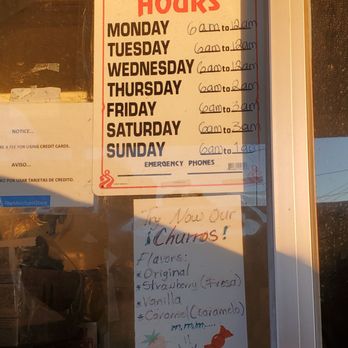 HOURS
MONDAY 6am to 12am
TUESDAY 6am to 12am
WEDNESDAY 6am to 12am
THURSDAY 6am to 2am
FRIDAY 6am to 3am
SATURDAY 6am to 3am
SUNDAY 6am to 1am
EMERGENCY PHONES
NOTICE...
E A FEE FOR USING CREDIT CARDS.
AVISO...
GO POR USAR TARJETAS DE CREDITO.
Try Now Our
¡Churros!
Flavors:
* Original
* Strawberry (Fresa)
* Vanilla
* Caramel (Caramelo)
m,mm,....